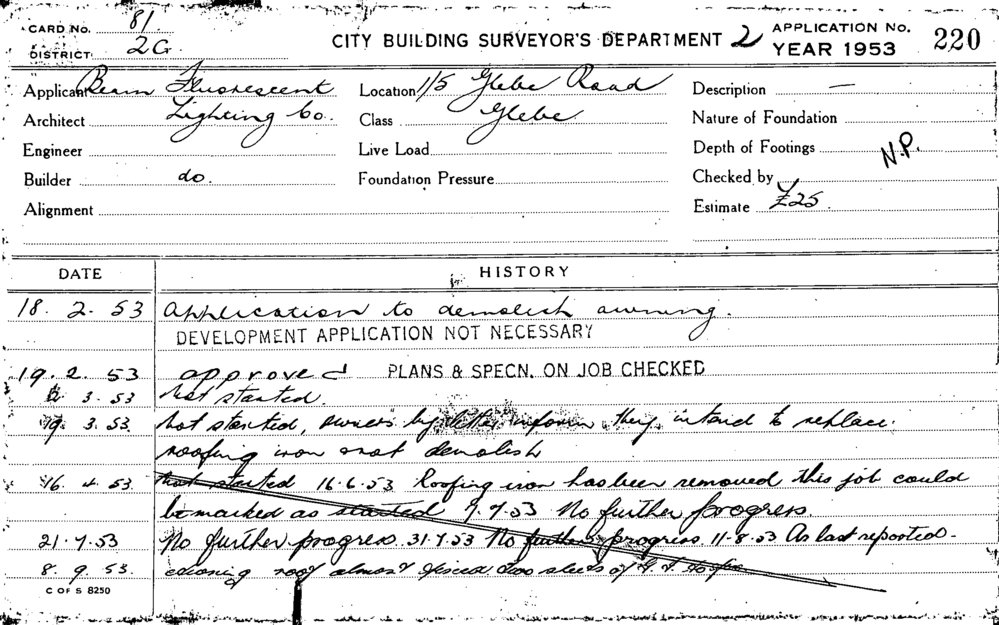 CARD No. 81
DISTRICT 2G
CITY BUILDING SURVEYOR'S DEPARTMENT 2
APPLICATION No.
YEAR 1953
220
Applicant Beam Fluorescent
Architect Lighting Co.
Engineer
Builder do.
Alignment
Location 1/5 Glebe Road
Class Glebe
Live Load
Foundation Pressure
Description —
Nature of Foundation
Depth of Footings N.P.
Checked by
Estimate £25
DATE HISTORY
18. 2. 53 Application to demolish awning.
DEVELOPMENT APPLICATION NOT NECESSARY
19. 2. 53 approved PLANS & SPECN. ON JOB CHECKED
3. 53 Not started.
19. 3. 53 Not started, owners by letter inform they intend to replace
roofing iron & not demolish
16. 4. 53 Not started 16.6.53 Roofing iron has been removed this job could
be marked as started 7.7.53 No further progress.
21.7.53 No further progress. 31.7.53 No further progress 11.8.53 As last reported.
8. 9. 53. awning roof almost sheets of G. I.
C OF S 8250